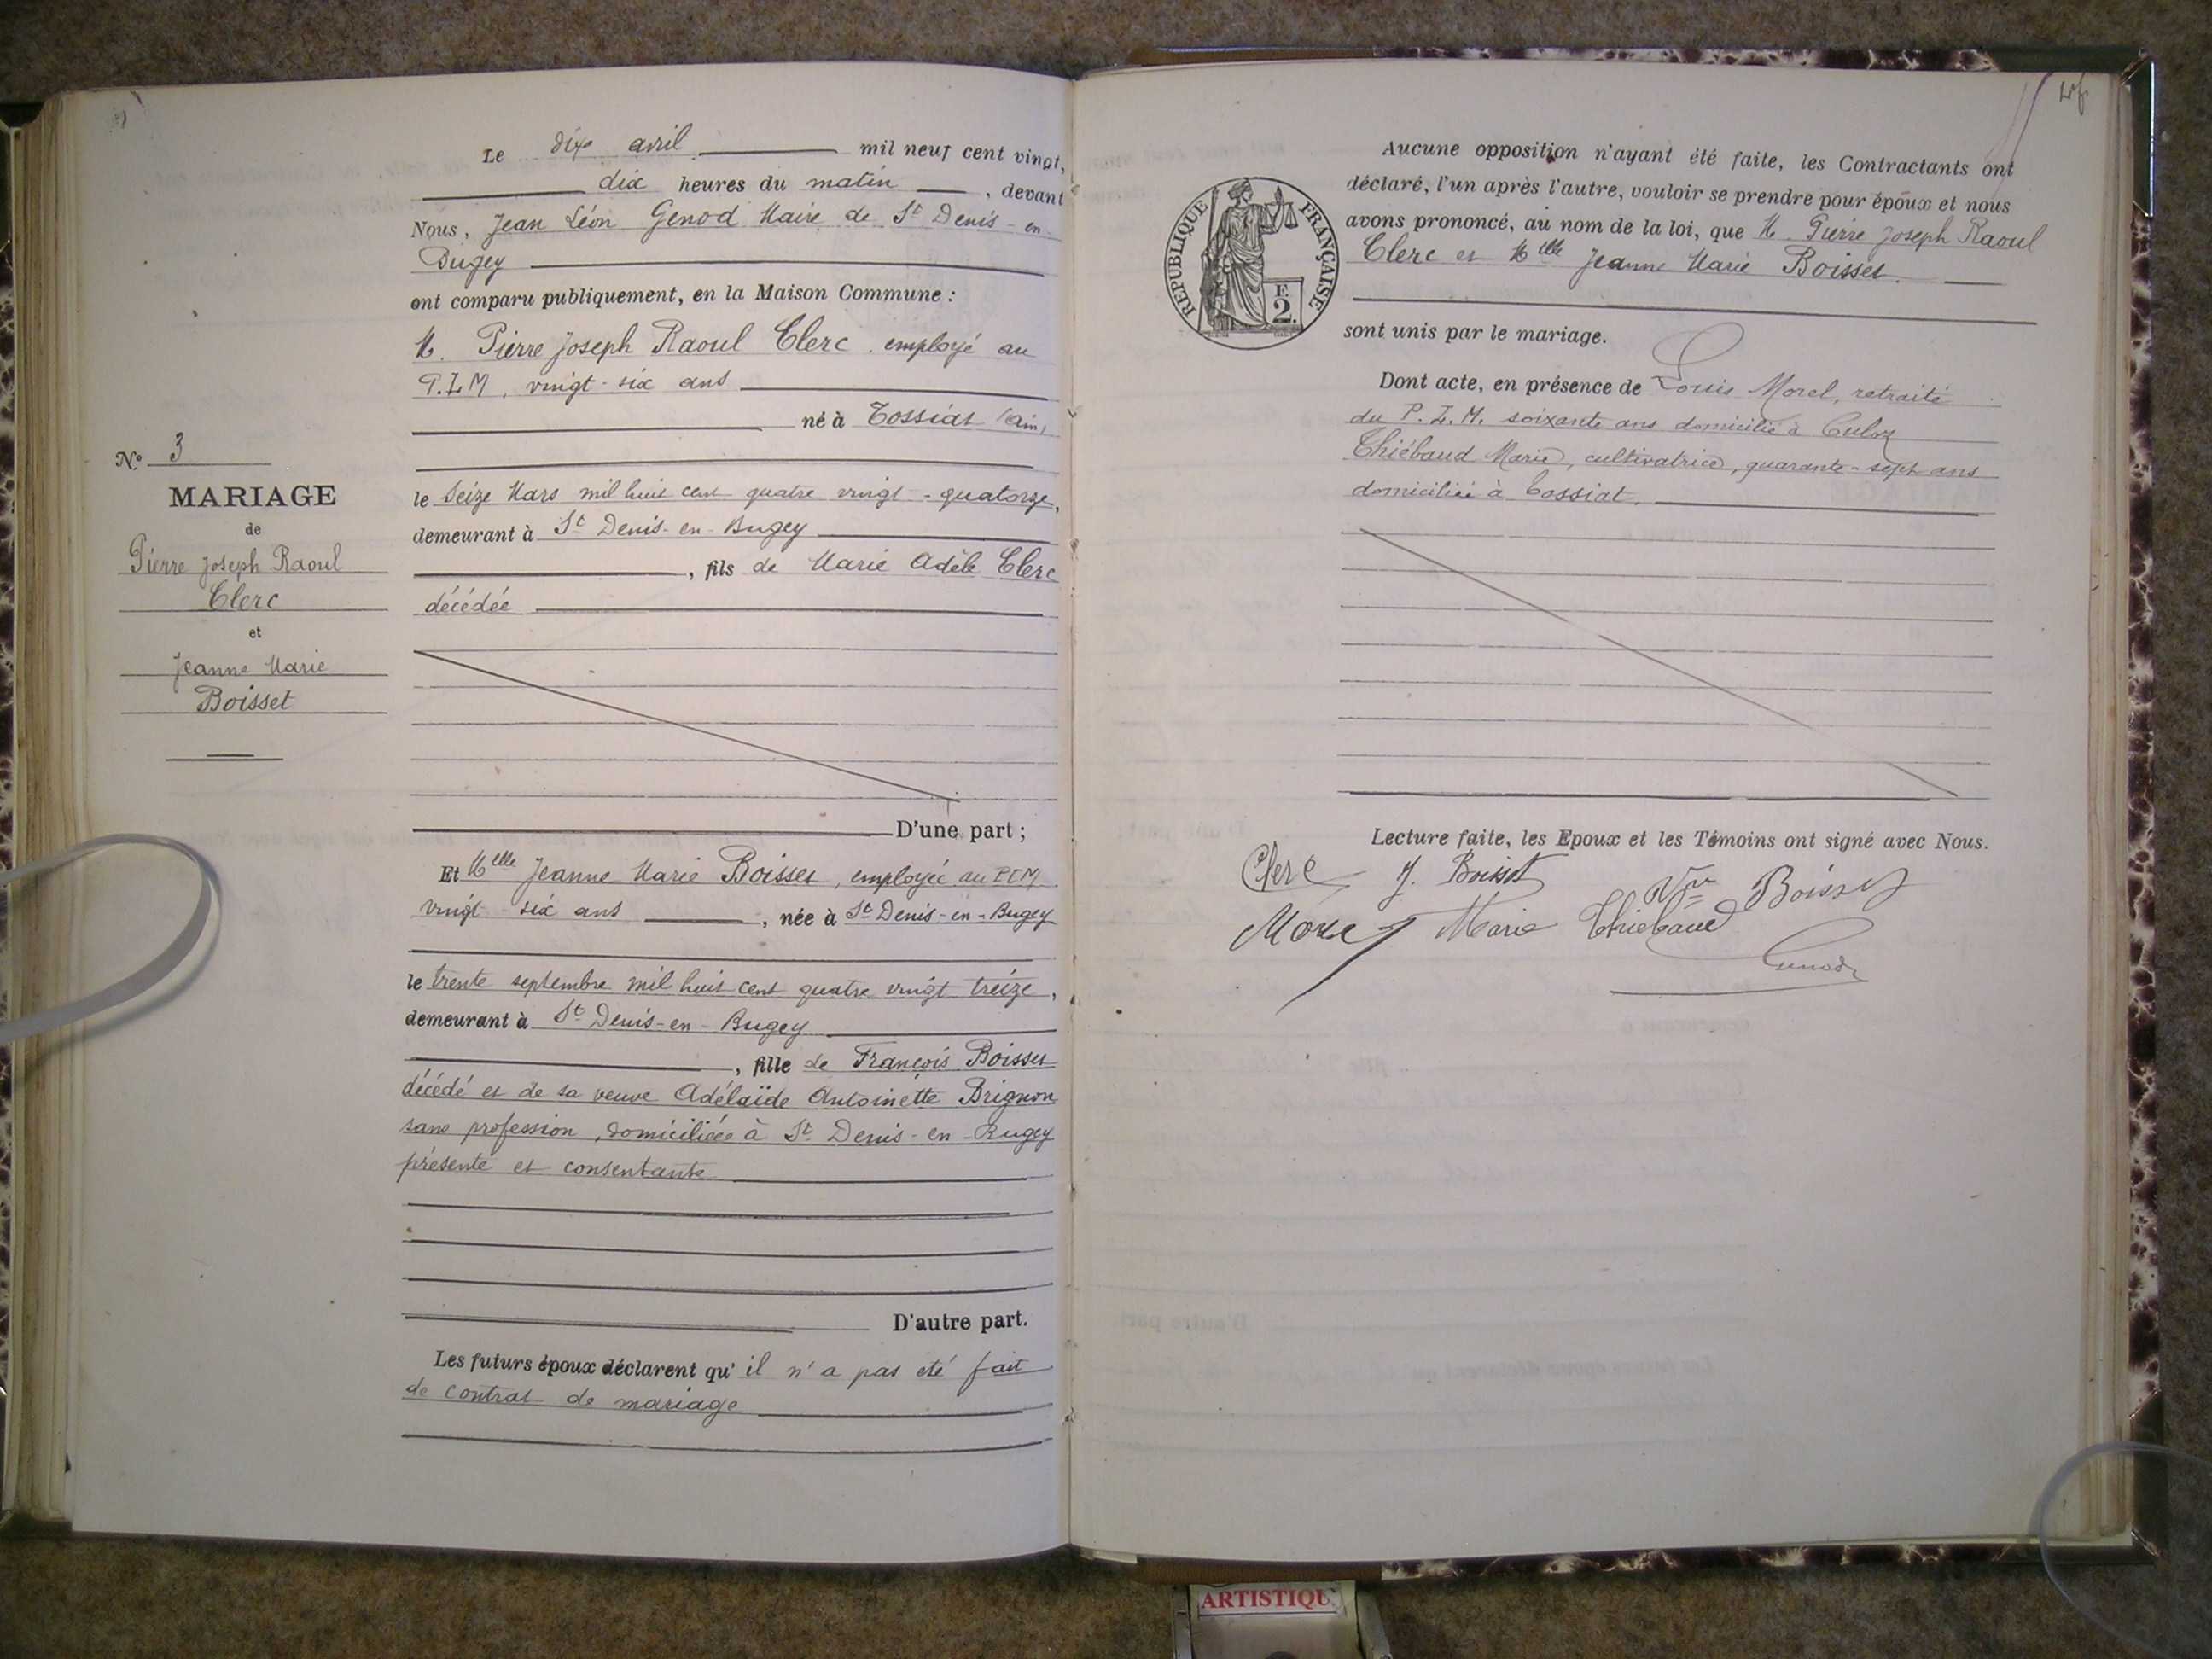 Le dix avril mil neuf cent vingt,
dix heures du matin, devant
Nous, Jean Léon Genod Maire de St Denis-en-
Bugey
ont comparu publiquement, en la Maison Commune :
M. Pierre Joseph Raoul Clerc. employé au
P.L.M, vingt-six ans
né à Tossiat (Ain)
le seize Mars mil huit cent quatre vingt-quatorze,
demeurant à St Denis-en-Bugey
, fils de Marie Adèle Clerc
décédée
D'une part ;
Et Melle Jeanne Marie Boisset, employée au PLM
vingt six ans, née à St Denis-en-Bugey
le trente septembre mil huit cent quatre vingt treize,
demeurant à St Denis-en-Bugey
, fille de François Boisset
décédé et de sa veuve Adélaïde Antoinette Brignon
sans profession, domiciliée à St Denis-en-Bugey
présente et consentante
D'autre part.
Les futurs époux déclarent qu'il n'a pas été fait
de contrat de mariage
No 3
MARIAGE
de
Pierre Joseph Raoul
Clerc
et
Jeanne Marie
Boisset
Aucune opposition n'ayant été faite, les Contractants ont
déclaré, l'un après l'autre, vouloir se prendre pour époux et nous
avons prononcé, au nom de la loi, que M. Pierre Joseph Raoul
Clerc et Melle Jeanne Marie Boisset.
sont unis par le mariage.
Dont acte, en présence de Louis Morel, retraité
du P.L.M. soixante ans domicilié à Culoz
Thiébaud Marie, cultivatrice, quarante-sept ans
domiciliée à Tossiat.
Lecture faite, les Epoux et les Témoins ont signé avec Nous.
Clerc J. Boisset Vve Boisset
Morel Marie Thiebaud
Genod
RÉPUBLIQUE FRANÇAISE
F.
2.
ARTISTIQU